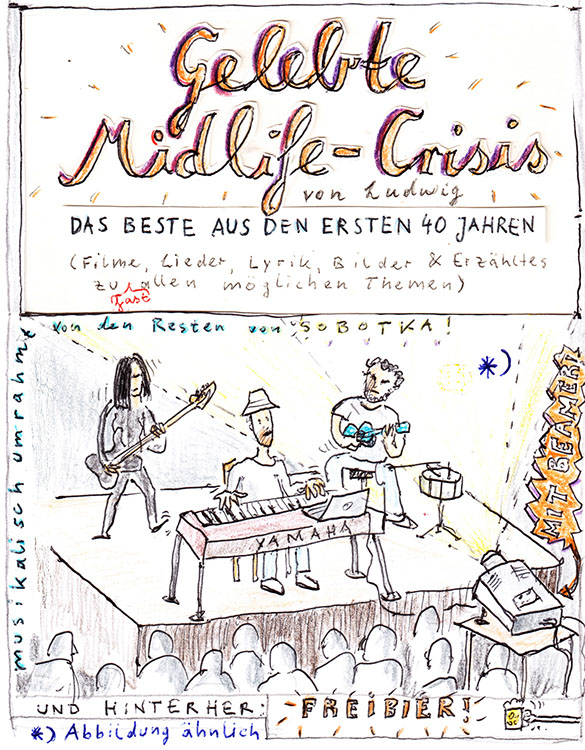 Gelebte
Midlife-Crisis
von Ludwig
DAS BESTE AUS DEN ERSTEN 40 JAHREN
(Filme, Lieder, Lyrik, Bilder & Erzähltes
zu fast allen möglichen Themen)
musikalisch umrahmt
von den Resten von SOBOTKA!
*)
MIT BEAMER!
YAMAHA
UND HINTERHER:
FREIBIER!
*) Abbildung ähnlich